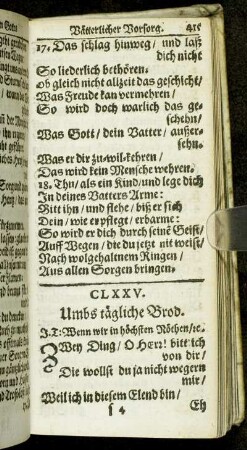 Vätterlicher Vorsorg. 415
17. Das schlag hinweg / und laß
dich nicht
So liederlich bethören.
Ob gleich nicht allzeit das geschicht/
Was Freude kan vermehren /
So wird doch warlich das ge-
schehn/
Was Gott / dein Vatter / außer-
sehn.
Was er dir zu wil kehren /
Das wird kein Mensche wehren.
18. Thu / als ein Kind / und lege dich
In deines Vatters Arme:
Bitt ihn / und flehe / biß er sich
Dein / wie er pflegt / erbarme:
So wird er dich durch seine Geist/
Auff Wegen / die du jetzt nit weist/
Nach wolgehaltnem Ringen /
Aus allen Sorgen bringen.
CLXXV.
Umbs tägliche Brod.
J.T: Wenn wir in höchsten Nöthen/ec.
Zwey Ding / O HErr! bitt ich
von dir /
Die wollst du ja nicht wegern
mir /
Weil ich in diesem Elend bin /
s 4 Eh